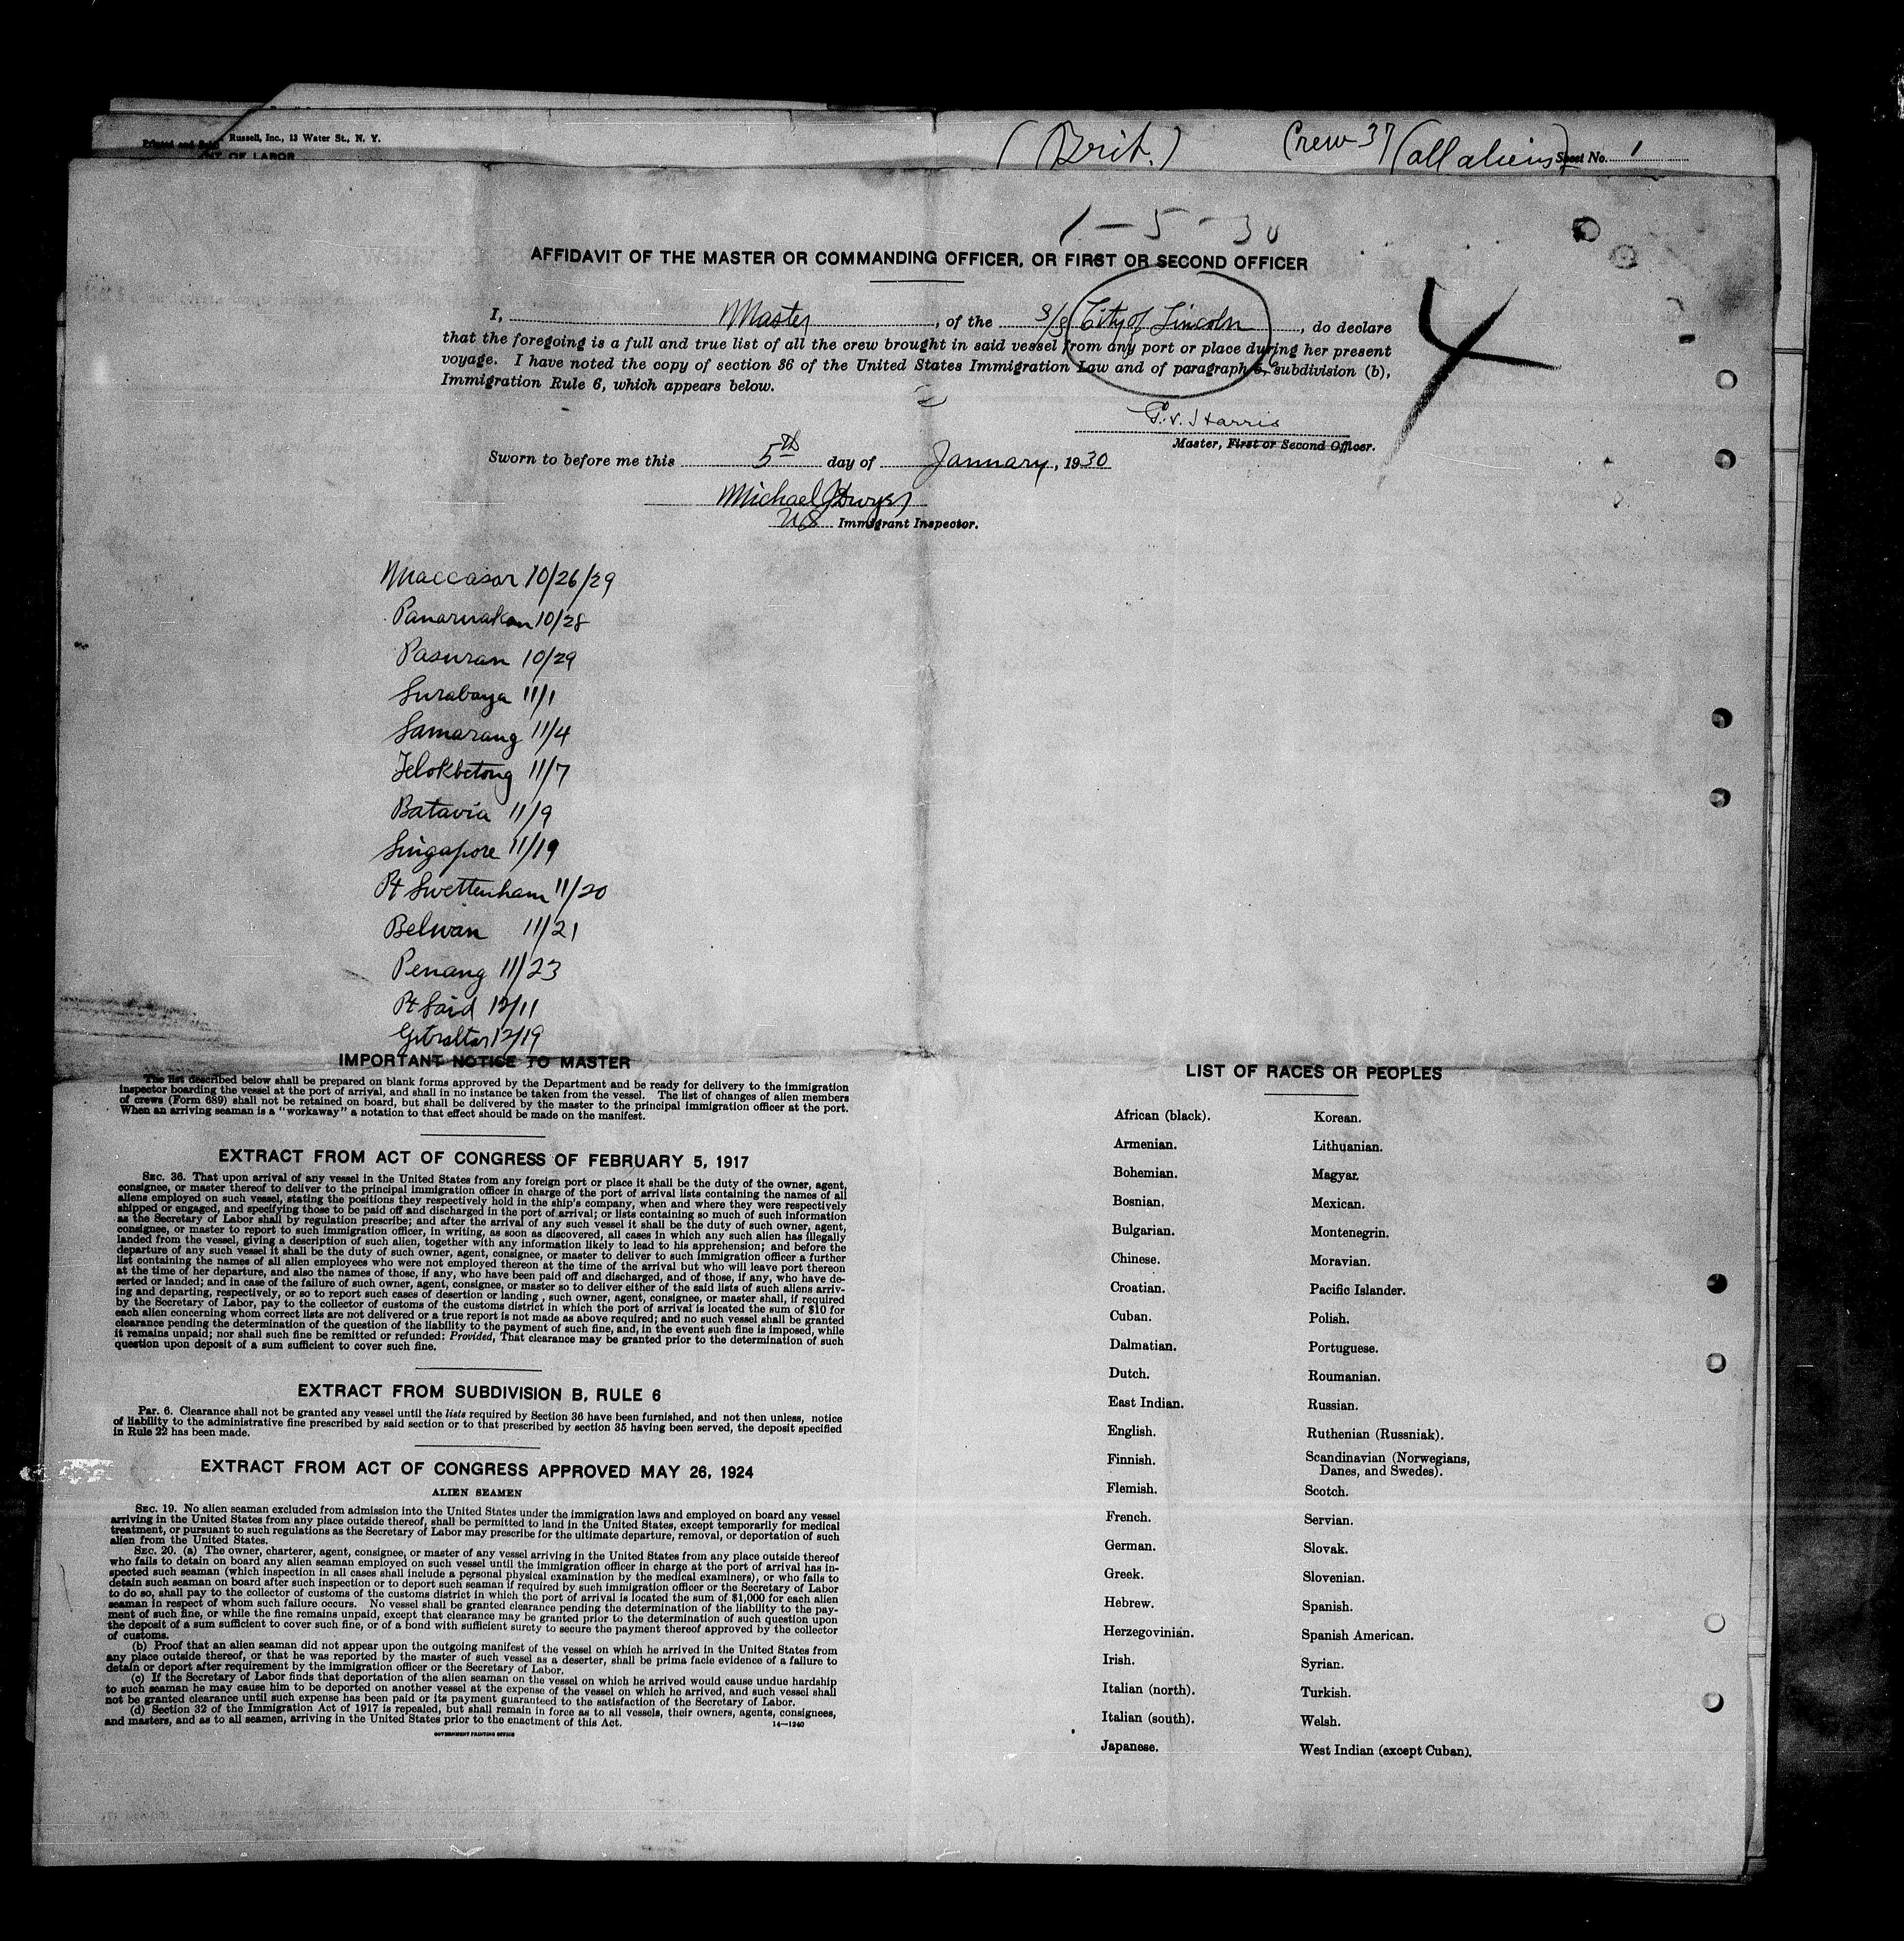 Russell, Inc., 13 Water St., N. Y.
Printed and
OF LABOR
(Brit.) Crew 37 (all aliens) Sheet No. 1
1-5-30
AFFIDAVIT OF THE MASTER OR COMMANDING OFFICER, OR FIRST OR SECOND OFFICER
I, Master, of the S/S City of Lincoln, do declare
that the foregoing is a full and true list of all the crew brought in said vessel from any port or place during her present
voyage. I have noted the copy of section 36 of the United States Immigration Law and of paragraph 6, subdivision (b),
Immigration Rule 6, which appears below.
4
Harris
Master, First or Second Officer.
Sworn to before me this 5th day of January, 1930
Michael J Dwyer
US Immigrant Inspector.
Maccasar 10/26/29
Panarukan 10/28
Pasuran 10/29
Surabaya 11/1
Samarang 11/4
Telokbetong 11/7
Batavia 11/9
Singapore 11/19
Pt Swettenham 11/20
Belwan 11/21
Penang 11/23
Pt Said 12/11
Gibraltar 12/19
IMPORTANT NOTICE TO MASTER
The list described below shall be prepared on blank forms approved by the Department and be ready for delivery to the immigration
inspector boarding the vessel at the port of arrival, and shall in no instance be taken from the vessel. The list of changes of alien members
of crews (Form 689) shall not be retained on board, but shall be delivered by the master to the principal immigration officer at the port.
When an arriving seaman is a "workaway" a notation to that effect should be made on the manifest.
EXTRACT FROM ACT OF CONGRESS OF FEBRUARY 5, 1917
SEC. 36. That upon arrival of any vessel in the United States from any foreign port or place it shall be the duty of the owner, agent,
consignee, or master thereof to deliver to the principal immigration officer in charge of the port of arrival lists containing the names of all
aliens employed on such vessel, stating the positions they respectively hold in the ship's company, when and where they were respectively
shipped or engaged, and specifying those to be paid off and discharged in the port of arrival; or lists containing so much of such information
as the Secretary of Labor shall by regulation prescribe; and after the arrival of any such vessel it shall be the duty of such owner, agent,
consignee, or master to report to such immigration officer, in writing, as soon as discovered, all cases in which any such alien has illegally
landed from the vessel, giving a description of such alien, together with any information likely to lead to his apprehension; and before the
departure of any such vessel it shall be the duty of such owner, agent, consignee, or master to deliver to such immigration officer a further
list containing the names of all alien employees who were not employed thereon at the time of the arrival but who will leave port thereon
at the time of her departure, and also the names of those, if any, who have been paid off and discharged, and of those, if any, who have de-
serted or landed; and in case of the failure of such owner, agent, consignee, or master so to deliver either of the said lists of such aliens arriv-
ing and departing, respectively, or so to report such cases of desertion or landing, such owner, agent, consignee, or master shall, if required
by the Secretary of Labor, pay to the collector of customs of the customs district in which the port of arrival is located the sum of $10 for
each alien concerning whom correct lists are not delivered or a true report is not made as above required; and no such vessel shall be granted
clearance pending the determination of the question of the liability to the payment of such fine, and, in the event such fine is imposed, while
it remains unpaid; nor shall such fine be remitted or refunded: Provided, That clearance may be granted prior to the determination of such
question upon deposit of a sum sufficient to cover such fine.
EXTRACT FROM SUBDIVISION B, RULE 6
Par. 6. Clearance shall not be granted any vessel until the lists required by Section 36 have been furnished, and not then unless, notice
of liability to the administrative fine prescribed by said section or to that prescribed by section 35 having been served, the deposit specified
in Rule 22 has been made.
EXTRACT FROM ACT OF CONGRESS APPROVED MAY 26, 1924
ALIEN SEAMEN
SEC. 19. No alien seaman excluded from admission into the United States under the immigration laws and employed on board any vessel
arriving in the United States from any place outside thereof, shall be permitted to land in the United States, except temporarily for medical
treatment, or pursuant to such regulations as the Secretary of Labor may prescribe for the ultimate departure, removal, or deportation of such
alien from the United States.
SEC. 20. (a) The owner, charterer, agent, consignee, or master of any vessel arriving in the United States from any place outside thereof
who fails to detain on board any alien seaman employed on such vessel until the immigration officer in charge at the port of arrival has in-
spected such seaman (which inspection in all cases shall include a personal physical examination by the medical examiners), or who fails to
detain such seaman on board after such inspection or to deport such seaman if required by such immigration officer or the Secretary of Labor
to do so, shall pay to the collector of customs of the customs district in which the port of arrival is located the sum of $1,000 for each alien
seaman in respect of whom such failure occurs. No vessel shall be granted clearance pending the determination of the liability to the pay-
ment of such fine, or while the fine remains unpaid, except that clearance may be granted prior to the determination of such question upon
the deposit of a sum sufficient to cover such fine, or of a bond with sufficient surety to secure the payment thereof approved by the collector
of customs.
(b) Proof that an alien seaman did not appear upon the outgoing manifest of the vessel on which he arrived in the United States from
any place outside thereof, or that he was reported by the master of such vessel as a deserter, shall be prima facie evidence of a failure to
detain or deport after requirement by the immigration officer or the Secretary of Labor.
(c) If the Secretary of Labor finds that deportation of the alien seaman on the vessel on which he arrived would cause undue hardship
to such seaman he may cause him to be deported on another vessel at the expense of the vessel on which he arrived, and such vessel shall
not be granted clearance until such expense has been paid or its payment guaranteed to the satisfaction of the Secretary of Labor.
(d) Section 32 of the Immigration Act of 1917 is repealed, but shall remain in force as to all vessels, their owners, agents, consignees,
and masters, and as to all seamen, arriving in the United States prior to the enactment of this Act.
14—1240
GOVERNMENT PRINTING OFFICE
LIST OF RACES OR PEOPLES
African (black).
Armenian.
Bohemian.
Bosnian.
Bulgarian.
Chinese.
Croatian.
Cuban.
Dalmatian.
Dutch.
East Indian.
English.
Finnish.
Flemish.
French.
German.
Greek.
Hebrew.
Herzegovinian.
Irish.
Italian (north).
Italian (south).
Japanese.
Korean.
Lithuanian.
Magyar.
Mexican.
Montenegrin.
Moravian.
Pacific Islander.
Polish.
Portuguese.
Roumanian.
Russian.
Ruthenian (Russniak).
Scandinavian (Norwegians,
Danes, and Swedes).
Scotch.
Servian.
Slovak.
Slovenian.
Spanish.
Spanish American.
Syrian.
Turkish.
Welsh.
West Indian (except Cuban).